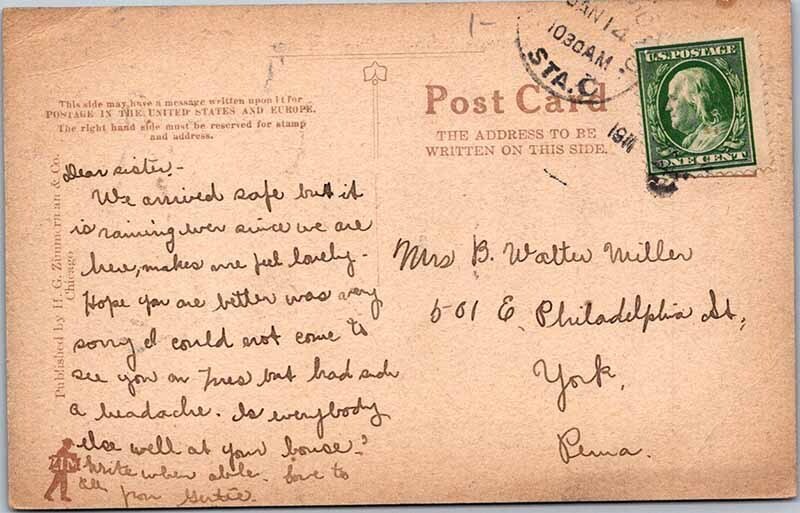 JAN 14
10 30 AM
STA. C
1911
U.S. POSTAGE
ONE CENT
This side may have a message written upon it for
POSTAGE IN THE UNITED STATES AND EUROPE.
The right hand side must be reserved for stamp
and address.
Post Card
THE ADDRESS TO BE
WRITTEN ON THIS SIDE.
Published by H. G. Zimmerman & Co.
Chicago
Dear sister-
We arrived safe but it
is raining ever since we are
here, makes me feel lonely-
Hope you are better was very
sorry I could not come to
see you on Tues but had such
a headache. Is everybody
else well at your house?
Write when able. Love to
all from Gertie.
ZIM
Mrs B. Walter Miller
501 E. Philadelphia St,
York,
Penna.